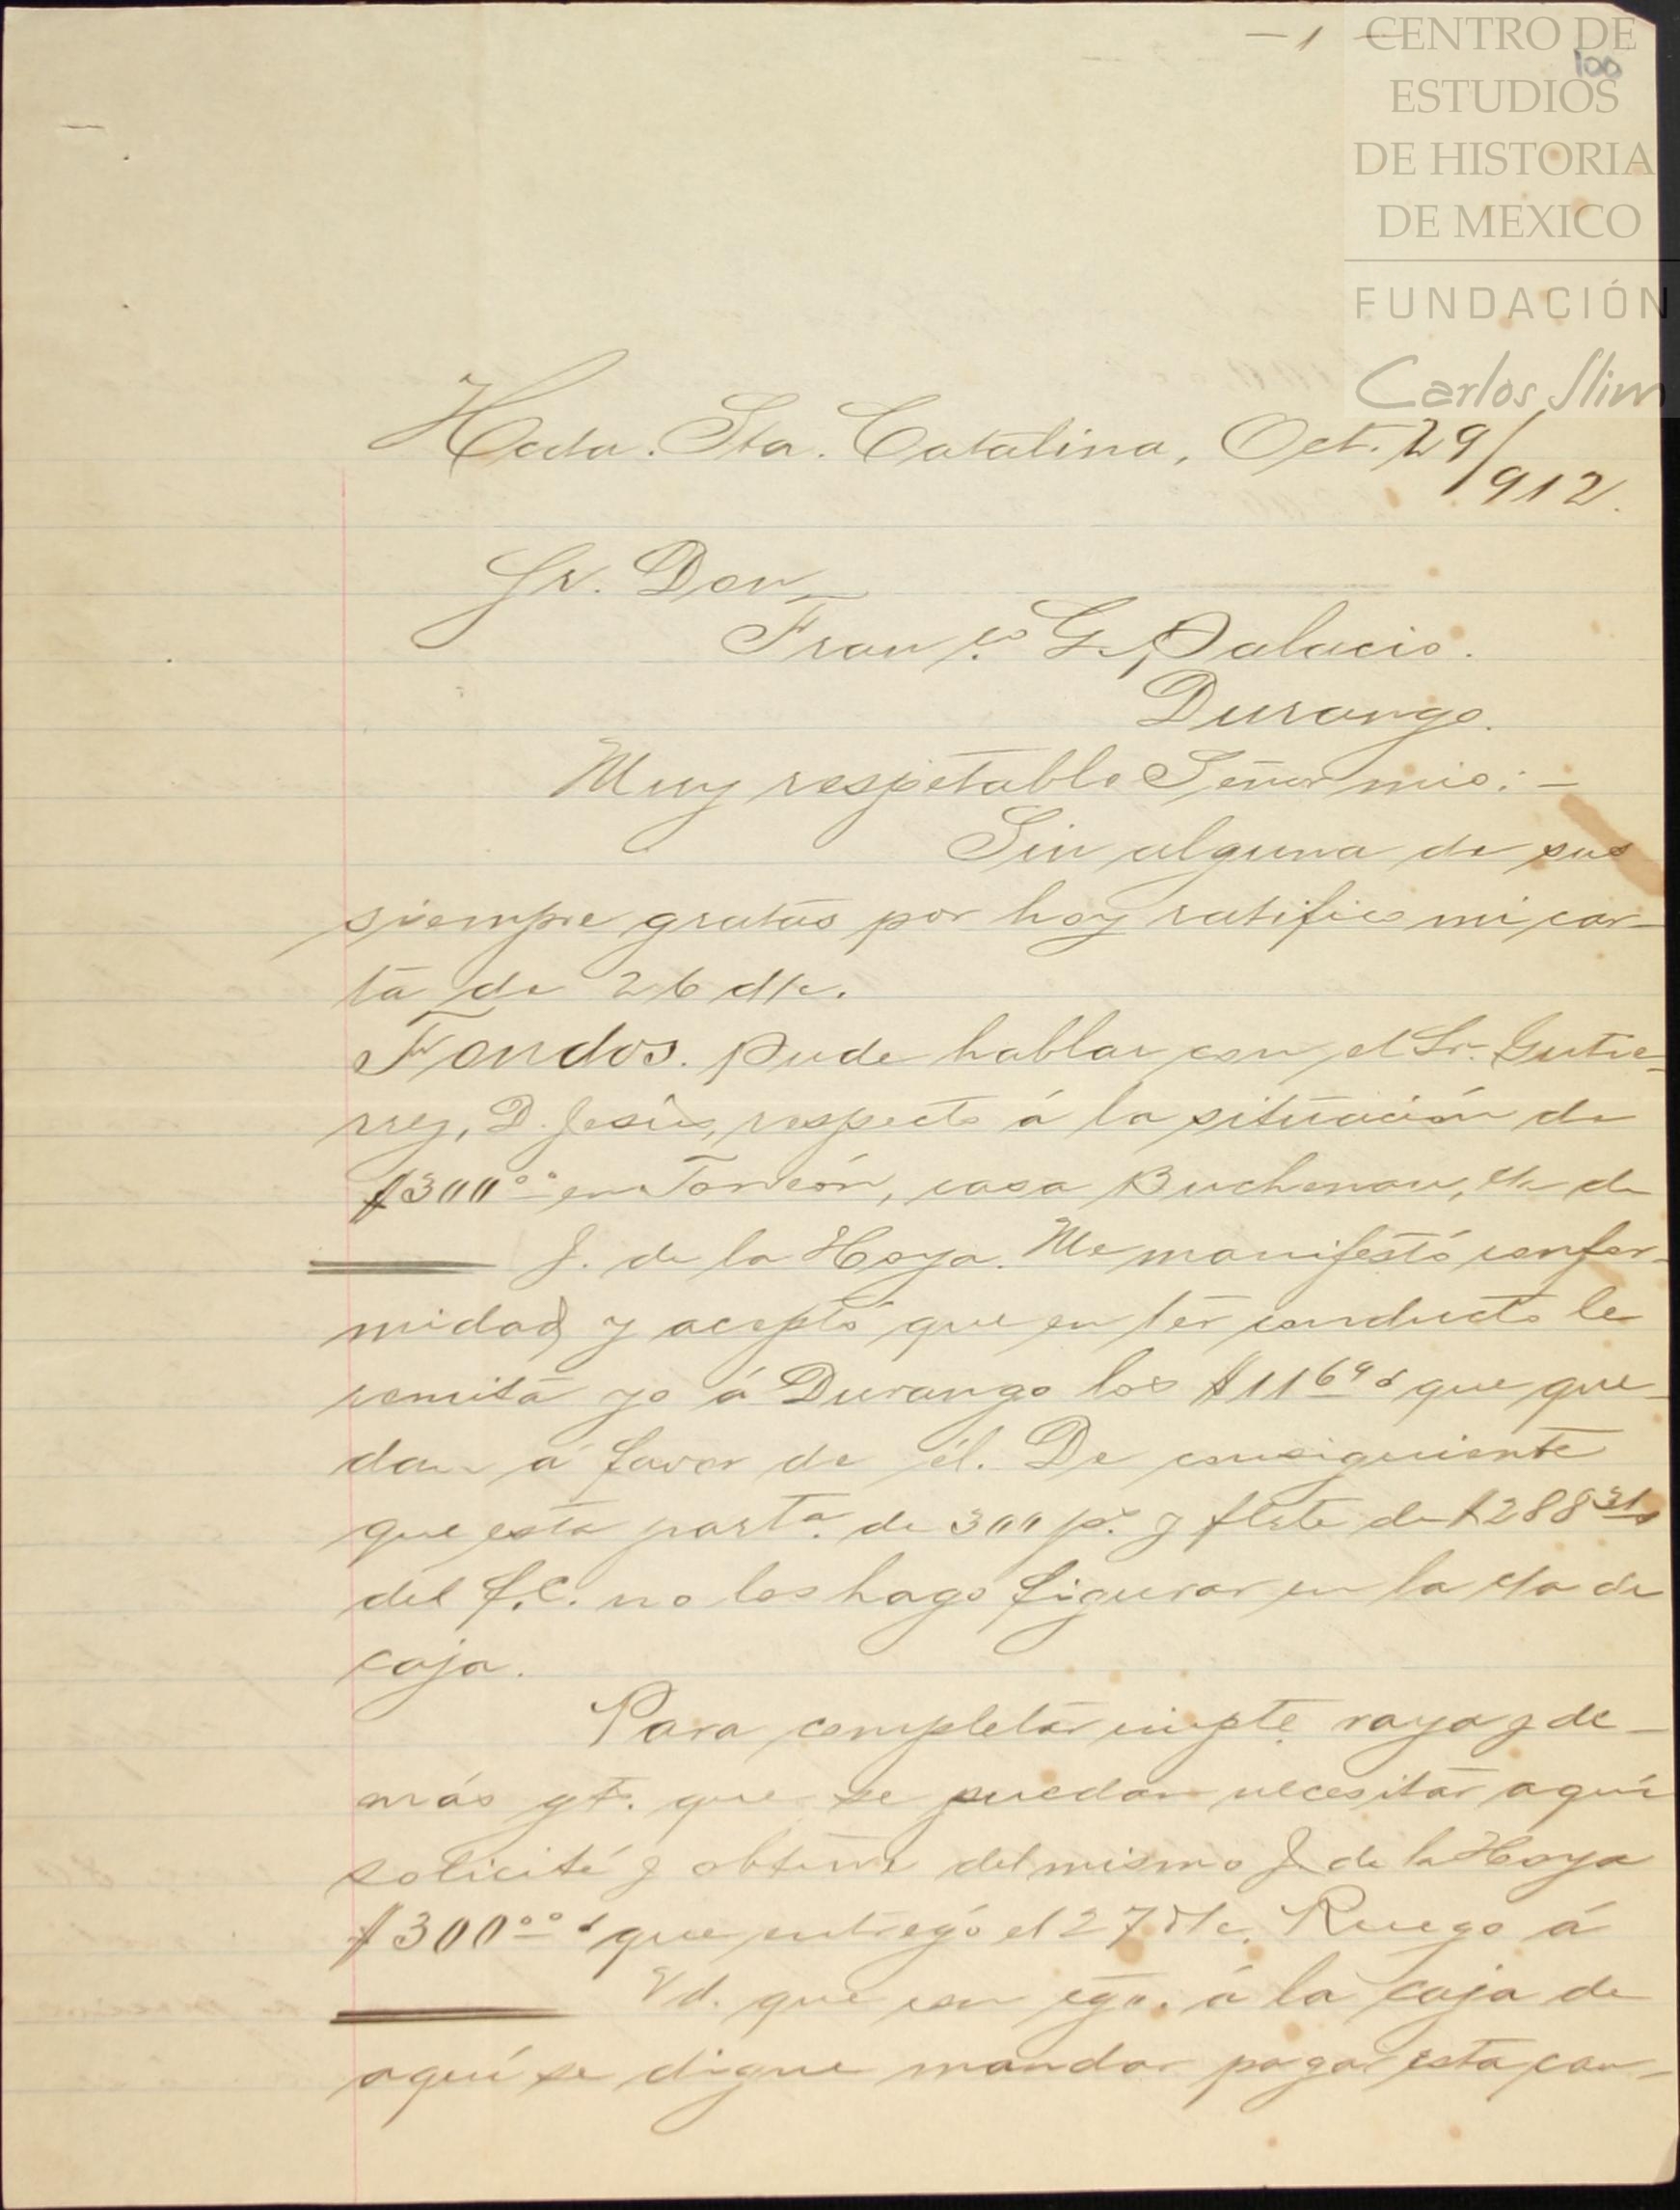 — 1 —
100
CENTRO DE
ESTUDIOS
DE HISTORIA
DE MEXICO
FUNDACIÓN
Carlos Slim
Hcda. Sta. Catalina, Oct. 29/912.
Sr. Don
Franco. G. Palacio.
Durango.
Muy respetable Señor mio: —
Sin alguna de sus
siempre gratas por hoy ratifico mi car-
ta de 26 d/c.
Fondos. Pude hablar con el Sr. Gutie-
rrez, D. Jesús, respecto á la situación de
$300.00 en Torreón, casa Buchenau, cta de
J. de la Hoya. Me manifestó confor-
midad y aceptó que en 1er conducto le
remita yo á Durango los $11.69 que que-
dan á favor de él. De consiguiente
que esta part.a de 300 ps. y flete de $288.31
del f.c. no los hago figurar en la cta de
caja.
Para completar impte. raya y de-
más gt. que se puedan necesitar aquí
solicité y obtuve del mismo J. de la Hoya
$300.00 que entregó el 27 d/c. Ruego á
Vd. que con cgo. á la caja de
aquí se digne mandar pagar esta can-